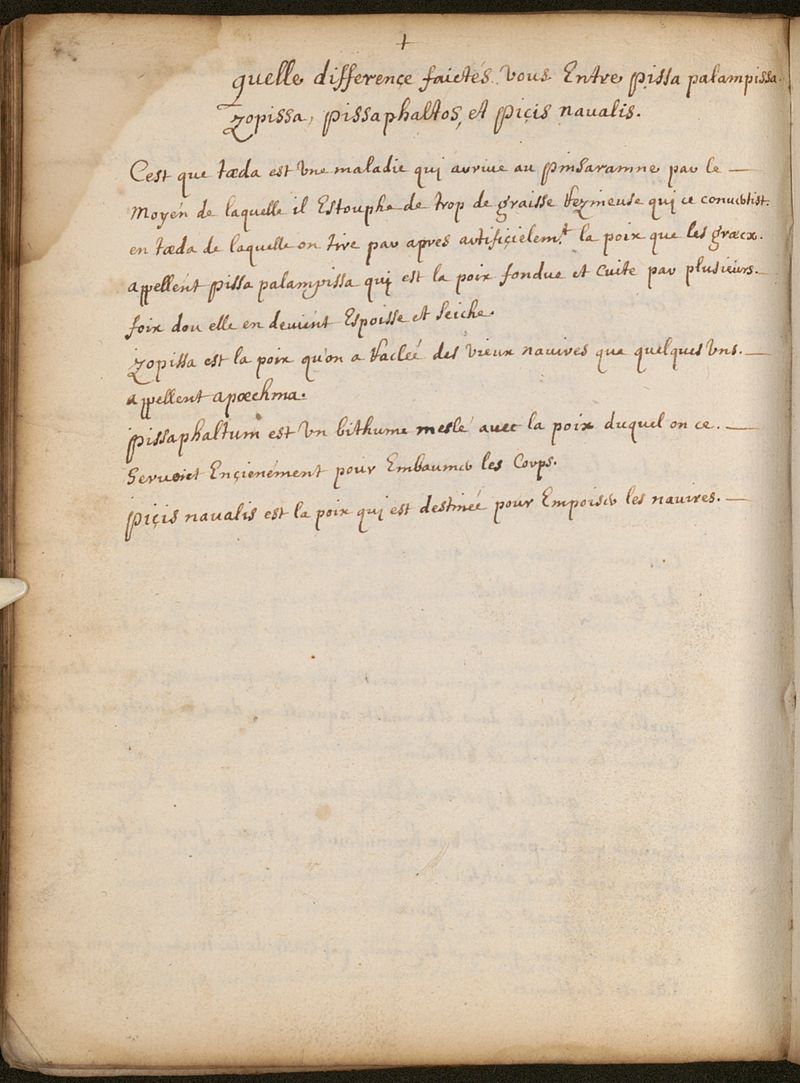 +
quelle difference faictés vous Entre pissa palampissa.
zopissa, pissaphaltos, et piçis naualis.
C'est que tæda est vne maladie qui arriue au pin par le
moyén de laquelle il Estouphe de trop de graisse qui ce conuertist.
en tæda de laquelle on tire par apres artificielemt la poix que les græcx.
appellent pissa palampissa qui est la poix fondue et cuite par plusieurs.
foix dou elle en deuient Espoisse et seiche.
zopissa est la poix qu'on a Racleé des vieux nauires que quelques vns.
appellent apochma.
pissaphaltum est vn bithume meslé auec la poix duquel on ce.
seruoict Ençienément pour Embaumer les Corps.
piçis naualis est la poix qui est destineé pour Empoiser les nauires.